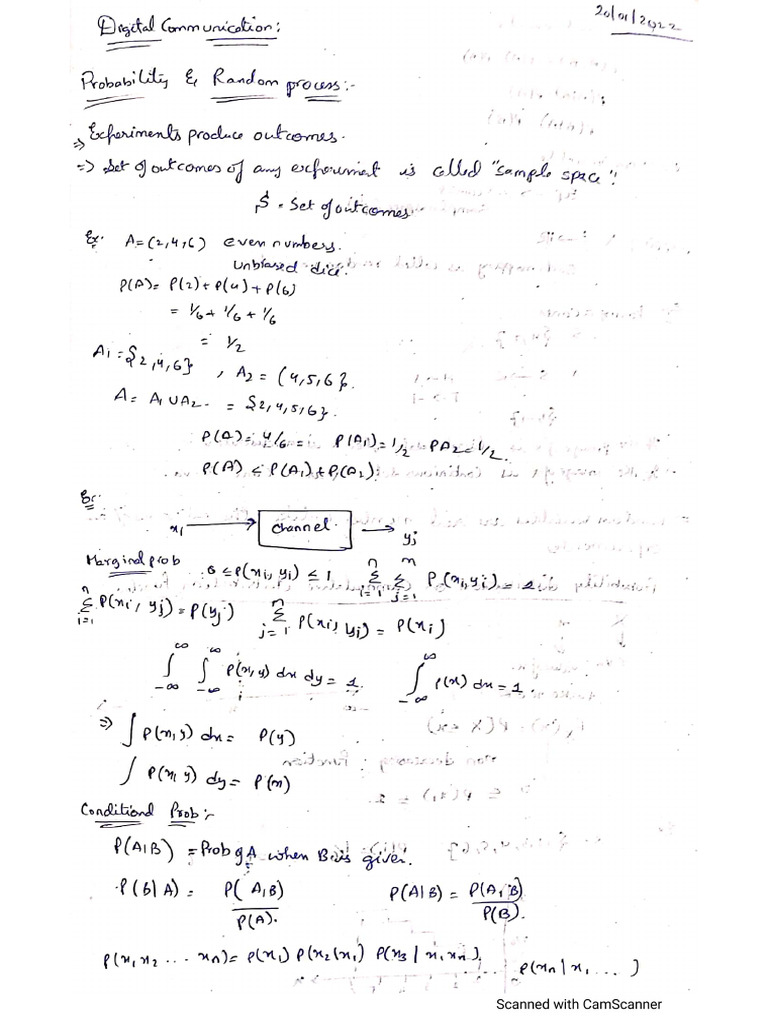 20/01/2022
Digital Communication:
Probability & Random process:-
⇒ Experiments produce outcomes.
⇒ Set of outcomes of any experiment is called "sample space".
S = Set of outcomes
Ex: A = (2,4,6) even numbers.
unbiased dice.
P(A) = P(2) + P(4) + P(6)
= 1/6 + 1/6 + 1/6
= 1/2
A1 = {2,4,6} , A2 = (4,5,6}.
A = A1 ∪ A2. = {2,4,5,6}.
P(A) = 4/6 = P(A1) = 1/2 PA2 = 1/2.
P(A) ≤ P(A1) + P(A2)
Ex.
xi → channel → yj
Marginal prob
0 ≤ P(xi, yi) ≤ 1 n∑i=1 m∑j=1 P(xi, yj) = 1
n∑i=1 P(xi, yj) = P(yj) n∑j=1 P(xi, yj) = P(xi)
∫∞-∞ ∫∞-∞ P(x,y) dx dy = 1. ∫∞-∞ P(x) dx = 1.
⇒ ∫ P(x,y) dx = P(y)
∫ P(x, y) dy = P(x)
Conditional Prob:-
P(A|B) = Prob of A when B is given.
P(B|A) = P(A,B)/P(A). P(A|B) = P(A, B)/P(B).
P(x1 x2 ... xn) = P(x1) P(x2|x1) P(x3 | x1 xn). P(xn | x1 ... )
Scanned with CamScanner